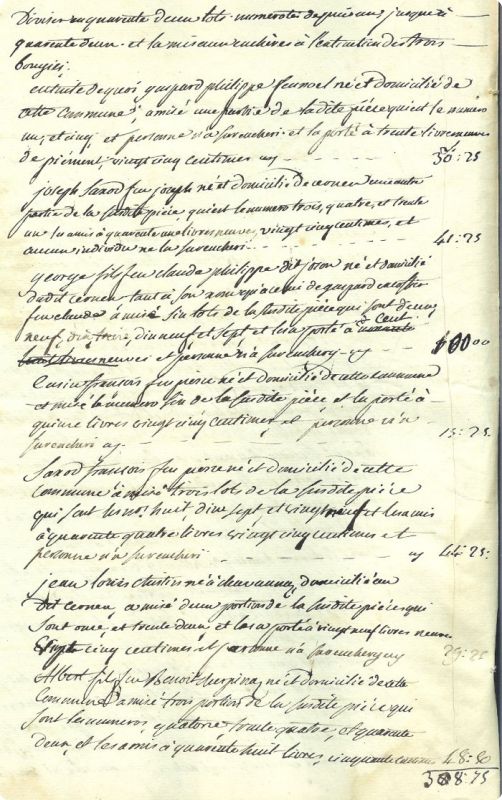 Diviser en quarante deux lots numerotés depuis un jusque à
quarante deux et la mise aux enchères à l'extinction des trois
bougies
ensuite de quoi gaspard philippe feu noel né et domicilié de
cette commune, a misé une partie de la dite pièce qui est le numero
un, et cinq et personne n'a surencheri et la porté à trente livres neuves
de piémont vingt cinq centimes 30:25
joseph Saxod feu joseph né et domicilié de cernex une autre
partie de la susdite pièce qui est le numero trois, quatre, et trente
un la mis à quarante une livres neuves, vingt cinq centimes, et
aucun individu ne la surencheri 41:25
george fils feu claude philippe dit joson né et domicilié
dudit cernex tant à son nom qu'à celui de gaspard
feu claude à misé six lots de la susdite pièce qui sont deux
neuf, dix, dix neuf et sept et les a porté à Cent
neuves et personne n'a surencheri 100 00
françois feu pierre né et domicilié de cette commune
et misé le numero six de la susdite pièce et la porté à
quinze livres vingt cinq centimes et personne n'a
surencheri 15:25
Saxod françois feu pierre né et domicilié de cette
Commune à misé trois lots de la susdite pièce
qui sont les nos huit dix sept et vingt neuf et les a mis
à quarante quatre livres vingt cinq centimes et
personne n'a surencheri 44:25
jean louis né à domicilié au
Dit cernex, a misé deux portions de la susdite pièce qui
sont onze, et trente deux, et les a porté à vingt neuf livres neuves
vingt cinq centimes et personne n'a surencheri 29:25
Albert fils feu Benoit né et domicilié de cette
Commune a misé trois portions de la susdite pièce qui
sont les numeros, quatorze trente quatre, et quarante
deux, et les a mis à quarante huit livres cinquante centimes 48:50
308:75